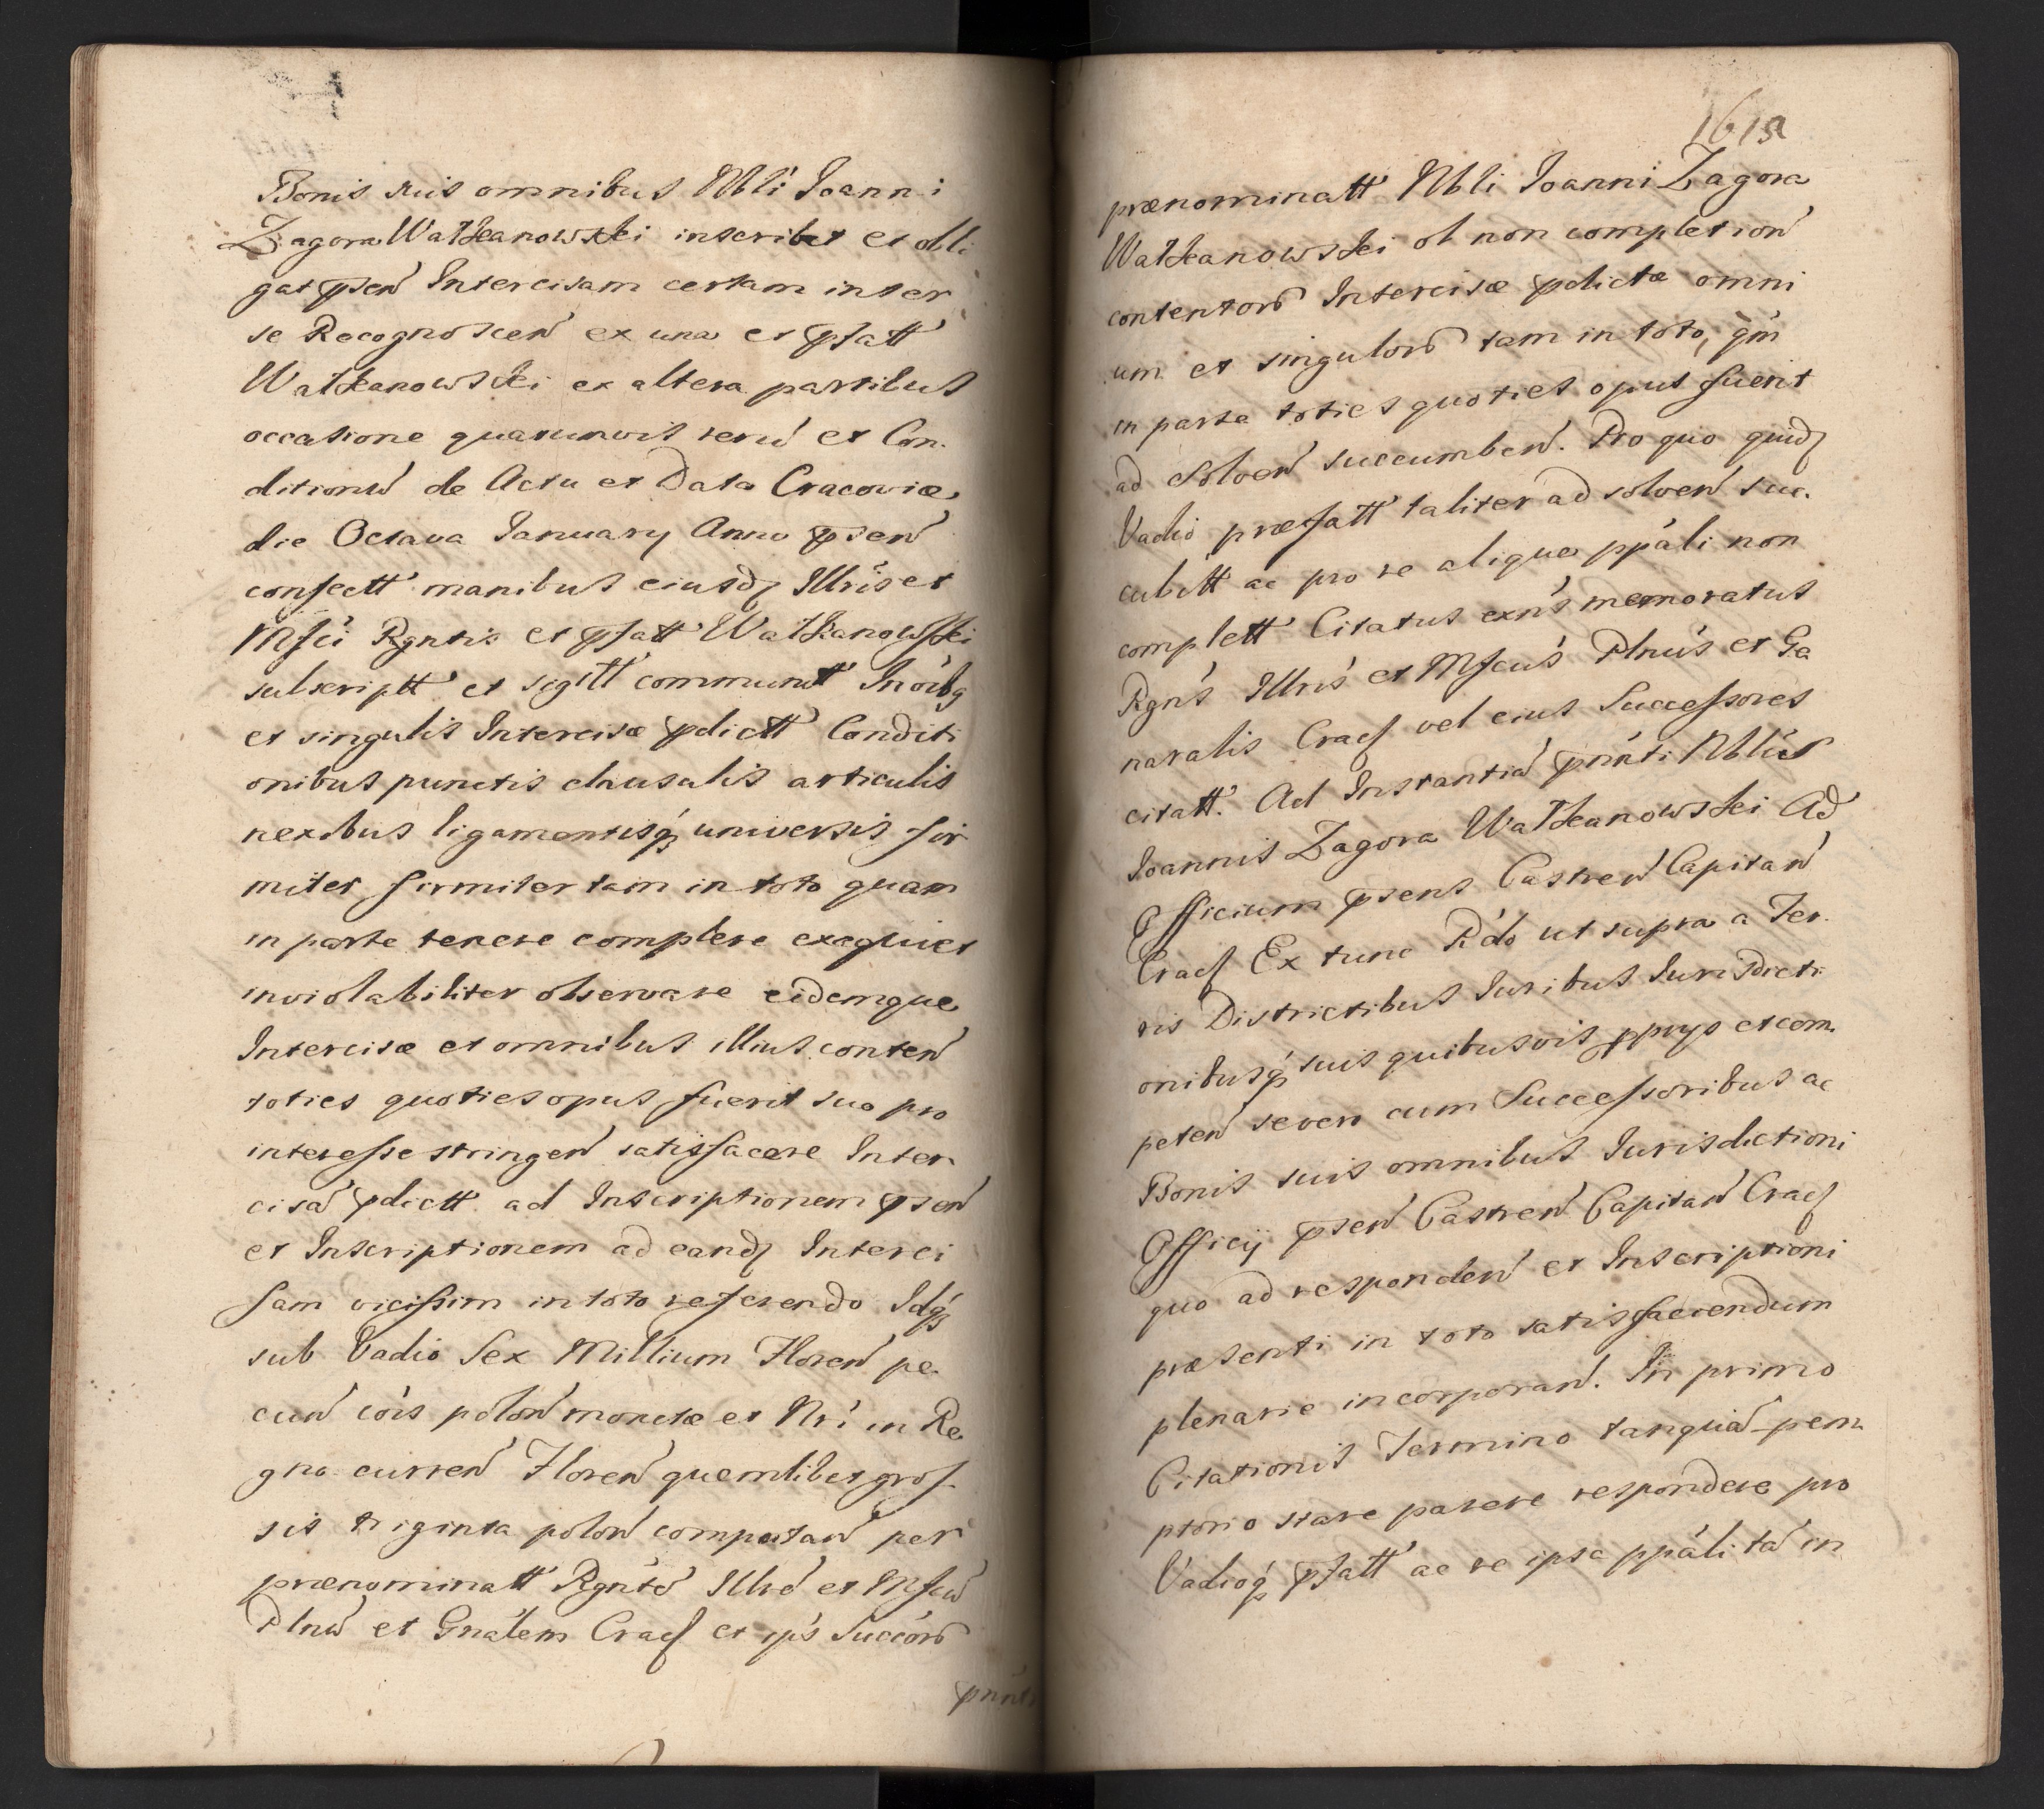 Bonis suis omnibus Nbli Joanni
Zagora Watkanowski inscribit et obli
gat psen Intercisam certam inter
se Recognoscen ex una et pfatt
Watkanowski ex altera partibus
occasione quarumvis reru et Con-
dition de Actu et Data Cracoviæ
die Octava January Anno psen
confectt manibus eiusdz Illris et
Mfci Rgntis et pfatt Watkanowski
subscriptt et sigill communitt In oibz
et singulis Intercisæ pdictt Conditi
onibus punctis clausulis articulis
nexibus ligamentisqz universis fir
miter firmiter tam in toto quam
in parte tenere complere exequi et
inviolabiliter observare eidemque
Intercisæ et omnibus illius conten
toties quoties opus fuerit suo pro
interesse stringen satisfacere Inter
cisa pdictt ad Inscriptionem psen
et Inscriptionem ad eandz Interci
sam vicissim in toto referendo Idqz
sub Vadio Sex Millium Floren pe
cun cois polon monetæ et Nri in Re
gno curren Floren quemlibet gros-
sis triginta polon computan per
prænominatt Rgnte Illre et Mfcu
Plnu et Gnalem Cracf et ips Succor
pnnti
161a
prænominatt Nbli Joanni Zagora
Watkanowski ob non completion
contentor Intercisæ pdictæ omni
um et singulor tam in toto, qm
in parte toties quoties opus fuerit
ad solven succumben. Pro quo quidz
Vadio præfatt taliter ad solven suc-
cubitt ac pro re aliqua ppali non
complett Citatus exns memoratus
Rgns Illris et Mfcus Plnus et Ge
naralis Cracf vel eius Successores
citatt. Ad Instantia pnnti Nblis
Joannis Zagora Watkanowski Ad
Officium psens Castren Capitan
Cracf Ex tunc Rdo ut supra a Ter-
ris Districtibus Juribus Jurisdicti
onibusqz suis quibusvis pprys et com-
peten severo cum Successoribus ac
Bonis suis omnibus Jurisdictioni
Officij psen Castren Capitan Cracf
quo ad responden et Inscriptioni
præsenti in toto satisfaciendum
plenarie incorporan. In primo
Citationis Termino tanqua pem-
ptorio stare parere respondere pro
Vadioqz pfatt ac re ipsa ppali ta in